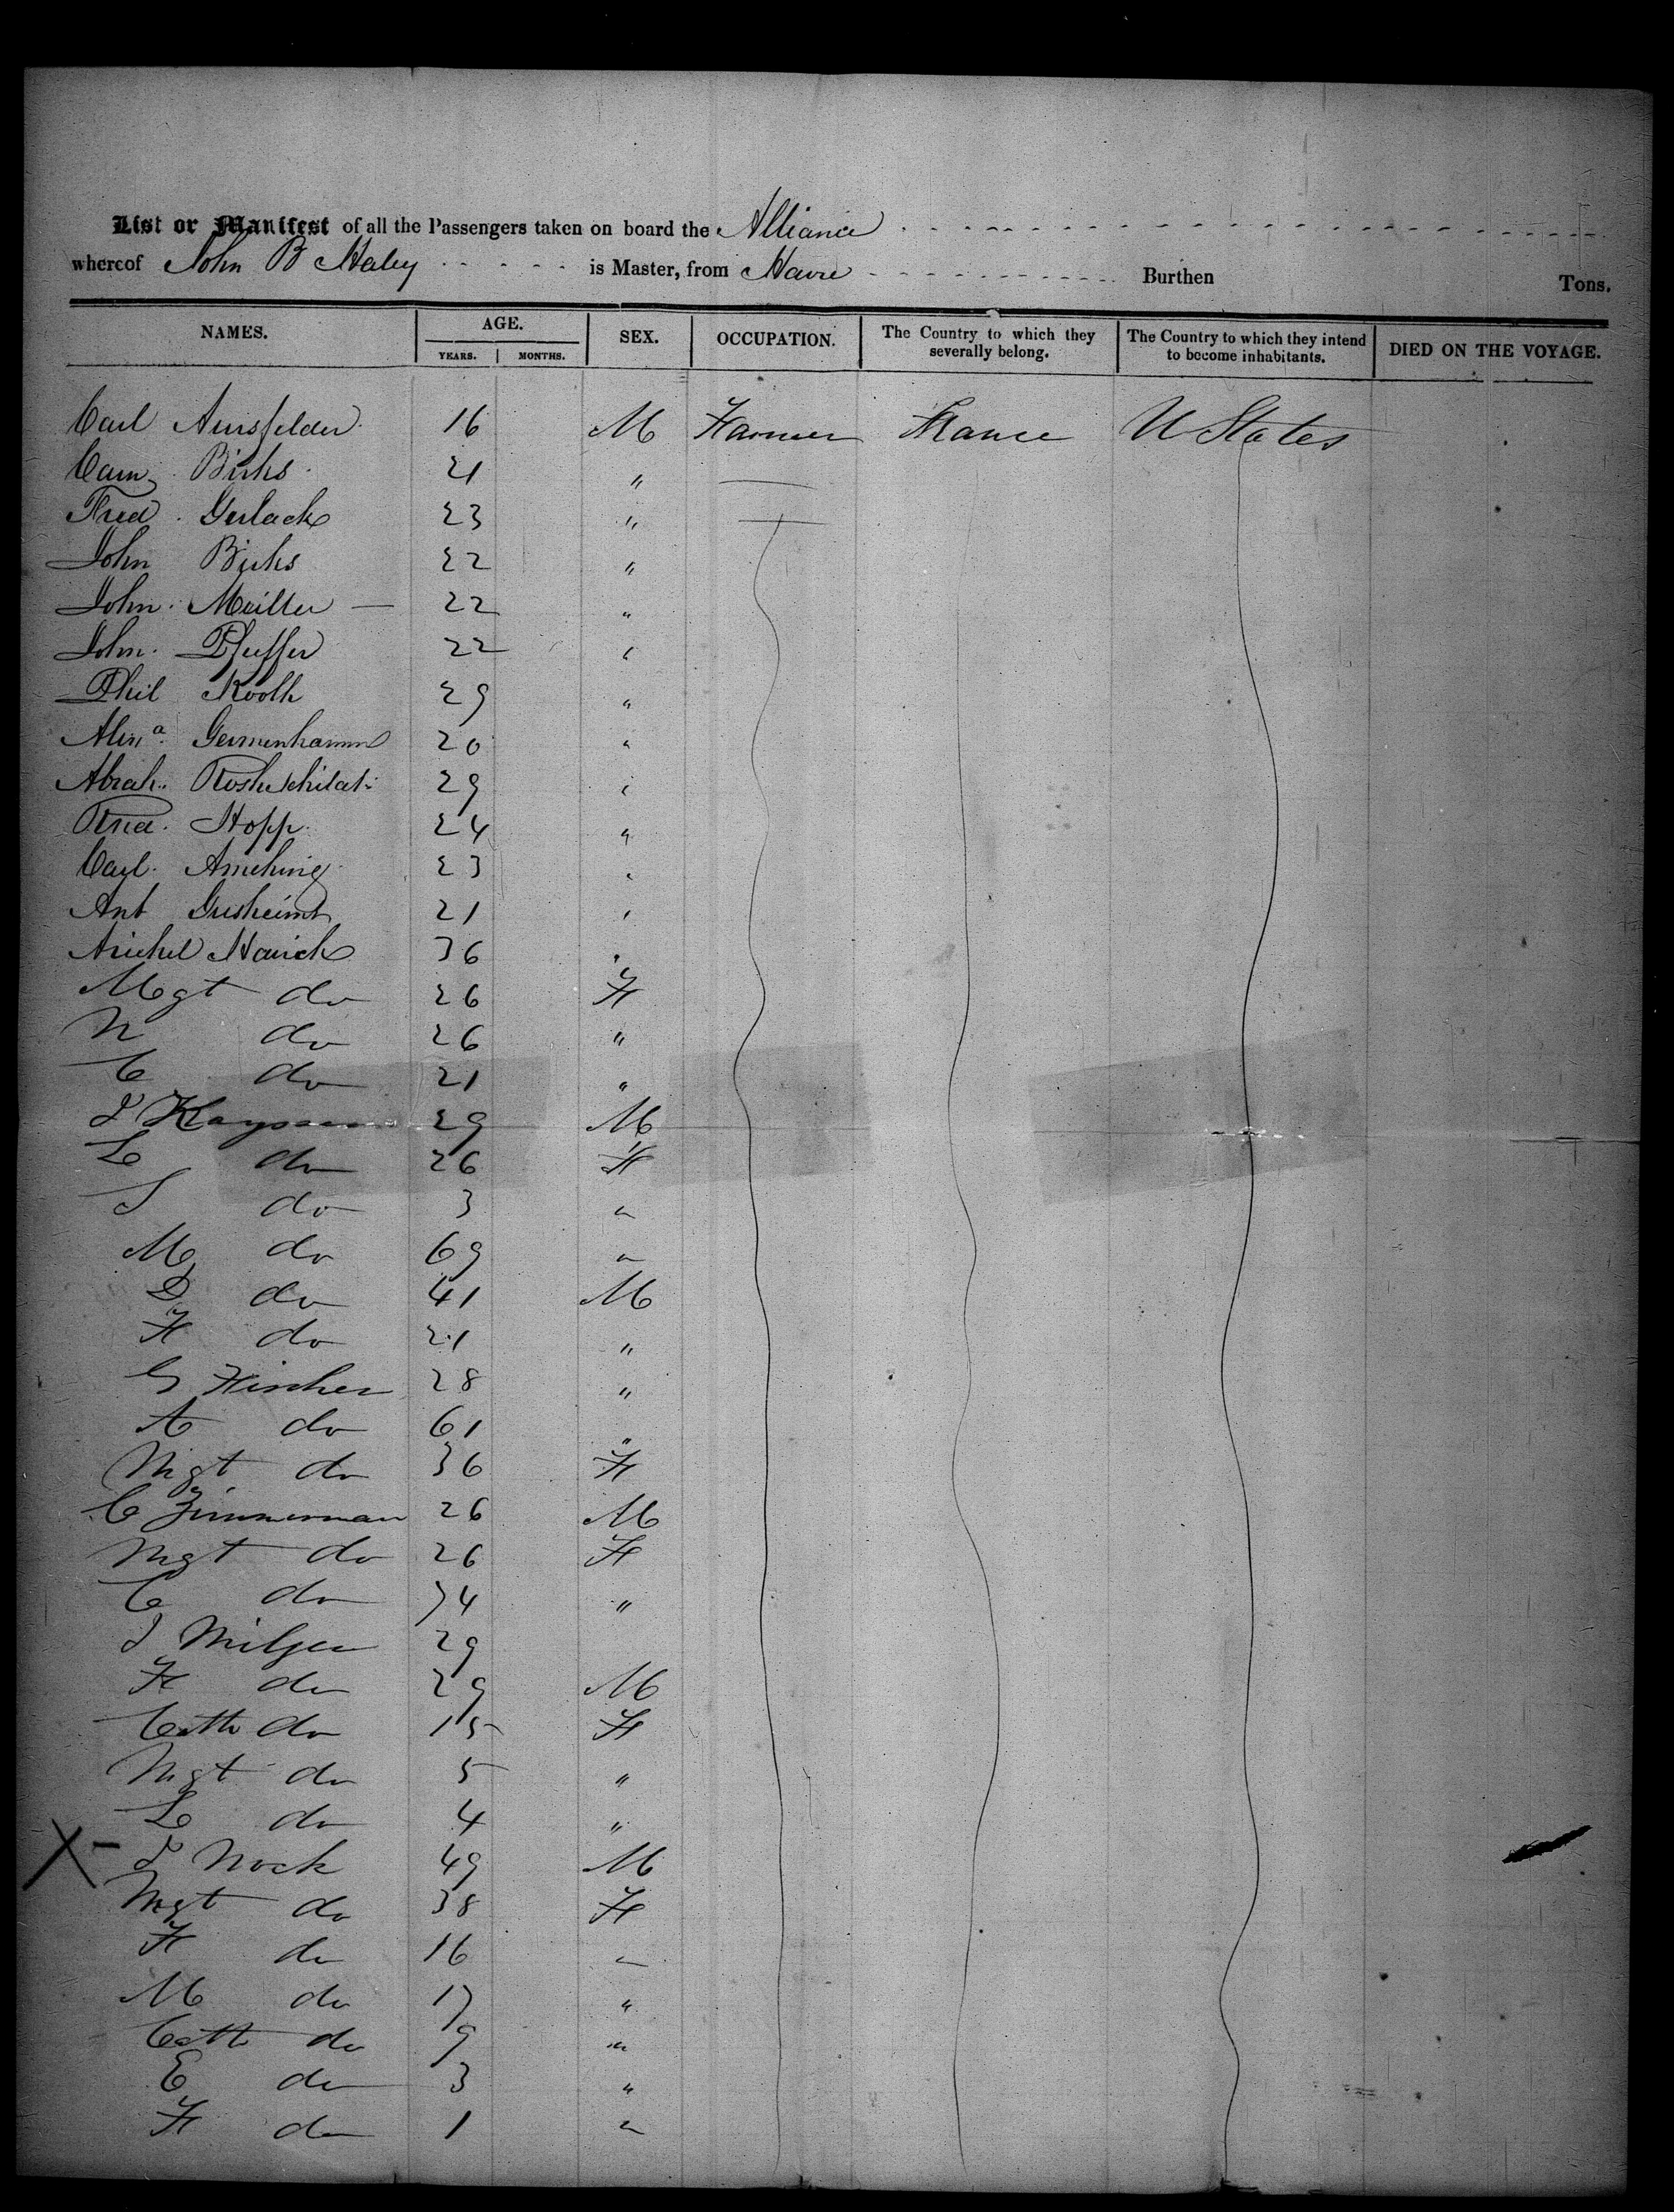 List or Manifest of all the Passengers taken on board the Alliance
whereof John B Haley is Master, from Havre Burthen Tons.
NAMES. AGE. YEARS. MONTHS. SEX. OCCUPATION. The Country to which they severally belong. The Country to which they intend to become inhabitants. DIED ON THE VOYAGE.
Carl 16 M Farmer France U States
21 "
Fred Gerlack 23 "
John 22 "
John 22 "
John Pfeffer 22 "
Phil 29 "
20 "
Abrah. 29 "
Hopp 24 "
Carl 23 "
Ant 21 "
Hauck 36 "
Mgt do 26 F
N do 26 "
C do 21 "
29 M
L do 26 F
S do 3 "
M do 69 "
D do 41 M
F do 21 "
G Fischer 28 "
A do 61 "
Mgt do 36 F
C Zimmerman 26 M
Mgt do 26 F
C do 34 "
29
F do 29 M
Cath do 15 F
Mgt do 5 "
L do 4 "
X - Nock 49 M
Mgt do 38 F
F do 16 "
M do 17 "
Cath do 9 "
E do 3 "
F do 1 "